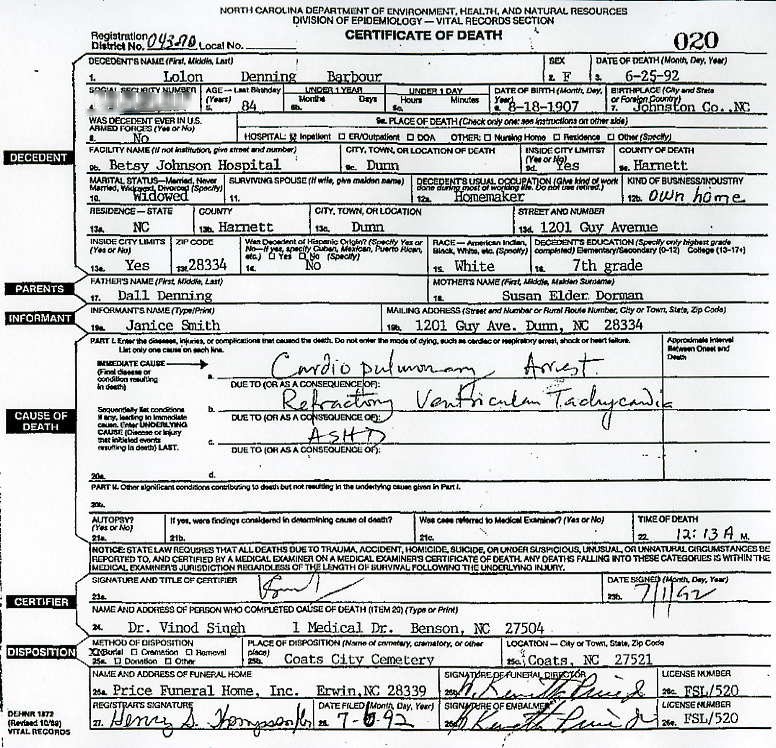 NORTH CAROLINA DEPARTMENT OF ENVIRONMENT, HEALTH, AND NATURAL RESOURCES
DIVISION OF EPIDEMIOLOGY — VITAL RECORDS SECTION
CERTIFICATE OF DEATH
Registration District No. 043-70 Local No. 020
DECEDENT
DECEDENT'S NAME (First, Middle, Last) SEX DATE OF DEATH (Month, Day, Year)
1. Lolon Denning Barbour 2. F 3. 6-25-92
SOCIAL SECURITY NUMBER AGE—Last Birthday (Years) UNDER 1 YEAR Months Days UNDER 1 DAY Hours Minutes DATE OF BIRTH (Month, Day, Year) BIRTHPLACE (City and State or Foreign Country)
4. 5. 84 5b. 5c. 6. 8-18-1907 7. Johnston Co., NC
WAS DECEDENT EVER IN U.S. ARMED FORCES? (Yes or No) 9a. PLACE OF DEATH (Check only one: see instructions on other side)
8. No HOSPITAL: Inpatient ER/Outpatient DOA OTHER: Nursing Home Residence Other (Specify)
FACILITY NAME (If not institution, give street and number) CITY, TOWN, OR LOCATION OF DEATH INSIDE CITY LIMITS? (Yes or No) COUNTY OF DEATH
9b. Betsy Johnson Hospital 9c. Dunn 9d. Yes 9e. Harnett
MARITAL STATUS—Married, Never Married, Widowed, Divorced (Specify) SURVIVING SPOUSE (If wife, give maiden name) DECEDENT'S USUAL OCCUPATION (Give kind of work done during most of working life. Do not use retired.) KIND OF BUSINESS/INDUSTRY
10. Widowed 11. 12a. Homemaker 12b. own home
RESIDENCE—STATE COUNTY CITY, TOWN, OR LOCATION STREET AND NUMBER
13a. NC 13b. Harnett 13c. Dunn 13d. 1201 Guy Avenue
INSIDE CITY LIMITS (Yes or No) ZIP CODE Was Decedent of Hispanic Origin? (Specify Yes or No—If yes, specify Cuban, Mexican, Puerto Rican, etc.) Yes No (Specify) RACE—American Indian, Black, White, etc. (Specify) DECEDENT'S EDUCATION (Specify only highest grade completed) Elementary/Secondary (0-12) College (13-17+)
13e. Yes 13f. 28334 14. No 15. White 16. 7th grade
PARENTS
FATHER'S NAME (First, Middle, Last) MOTHER'S NAME (First, Middle, Maiden Surname)
17. Dall Denning 18. Susan Elder Dorman
INFORMANT
INFORMANT'S NAME (Type/Print) MAILING ADDRESS (Street and Number or Rural Route Number, City or Town, State, Zip Code)
19a. Janice Smith 19b. 1201 Guy Ave. Dunn, NC 28334
CAUSE OF DEATH
PART I. Enter the diseases, injuries, or complications that caused the death. Do not enter the mode of dying, such as cardiac or respiratory arrest, shock or heart failure. List only one cause on each line. Approximate Interval Between Onset and Death
IMMEDIATE CAUSE (Final disease or condition resulting in death) a. Cardiopulmonary Arrest
DUE TO (OR AS A CONSEQUENCE OF):
Sequentially list conditions if any, leading to immediate cause. Enter UNDERLYING CAUSE (Disease or injury that initiated events resulting in death) LAST.
b. Refractory Ventricular Tachycardia
DUE TO (OR AS A CONSEQUENCE OF):
c. ASHD
DUE TO (OR AS A CONSEQUENCE OF):
20a. d.
PART II. Other significant conditions contributing to death but not resulting in the underlying cause given in Part I.
20b.
AUTOPSY? (Yes or No) If yes, were findings considered in determining cause of death? Was case referred to Medical Examiner? (Yes or No) TIME OF DEATH
21a. 21b. 21c. 22. 12:13 A M.
NOTICE: STATE LAW REQUIRES THAT ALL DEATHS DUE TO TRAUMA, ACCIDENT, HOMICIDE, SUICIDE, OR UNDER SUSPICIOUS, UNUSUAL, OR UNNATURAL CIRCUMSTANCES BE REPORTED TO, AND CERTIFIED BY A MEDICAL EXAMINER ON A MEDICAL EXAMINER'S CERTIFICATE OF DEATH. ANY DEATHS FALLING INTO THESE CATEGORIES IS WITHIN THE MEDICAL EXAMINER'S JURISDICTION REGARDLESS OF THE LENGTH OF SURVIVAL FOLLOWING THE UNDERLYING INJURY.
CERTIFIER
SIGNATURE AND TITLE OF CERTIFIER DATE SIGNED (Month, Day, Year)
23a. 23b. 7/1/92
NAME AND ADDRESS OF PERSON WHO COMPLETED CAUSE OF DEATH (ITEM 20) (Type or Print)
24. Dr. Vinod Singh 1 Medical Dr. Benson, NC 27504
DISPOSITION
METHOD OF DISPOSITION PLACE OF DISPOSITION (Name of cemetery, crematory, or other place) LOCATION — City or Town, State, Zip Code
Burial Cremation Removal
25a. Donation Other 25b. Coats City Cemetery 25c. Coats, NC 27521
NAME AND ADDRESS OF FUNERAL HOME SIGNATURE OF FUNERAL DIRECTOR LICENSE NUMBER
26a. Price Funeral Home, Inc. Erwin, NC 28339 26b. Kenneth Price Jr 26c. FSL/520
REGISTRAR'S SIGNATURE DATE FILED (Month, Day, Year) SIGNATURE OF EMBALMER LICENSE NUMBER
27. Henry S. Thompson 28. 7-6-92 26d. Kenneth Price Jr 26e. FSL/520
DEHNR 1872
(Revised 10/89)
VITAL RECORDS